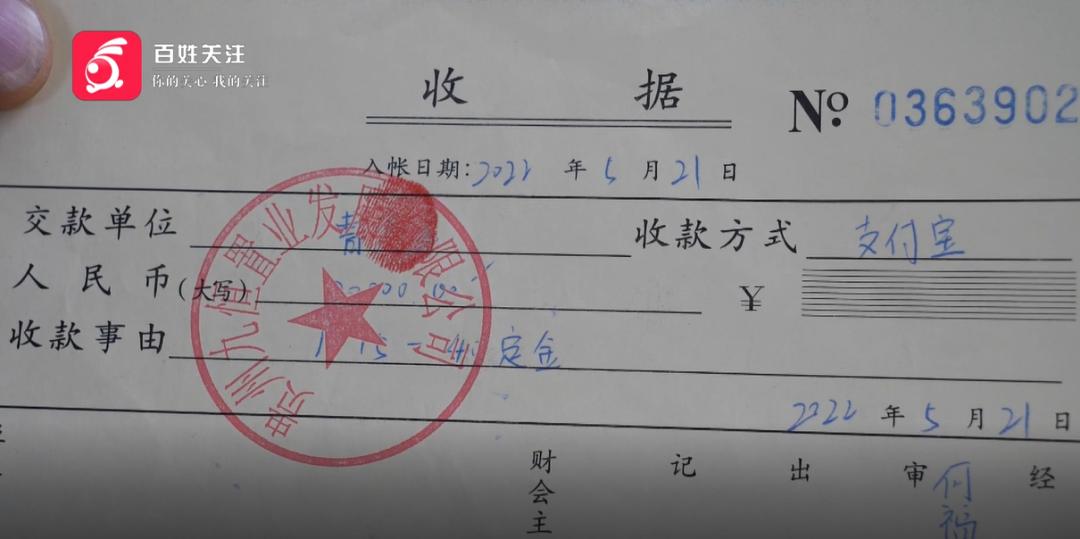 百姓关注
你的关心 我的关注
收 据
No. 0363902
入帐日期: 2022 年 5 月 21 日
交款单位 收款方式 支付宝
人民币(大写) ¥
收款事由 定金
贵州九恒置业发 限公司
2022 年 5 月 21 日
财会主 记 出 审 何 经